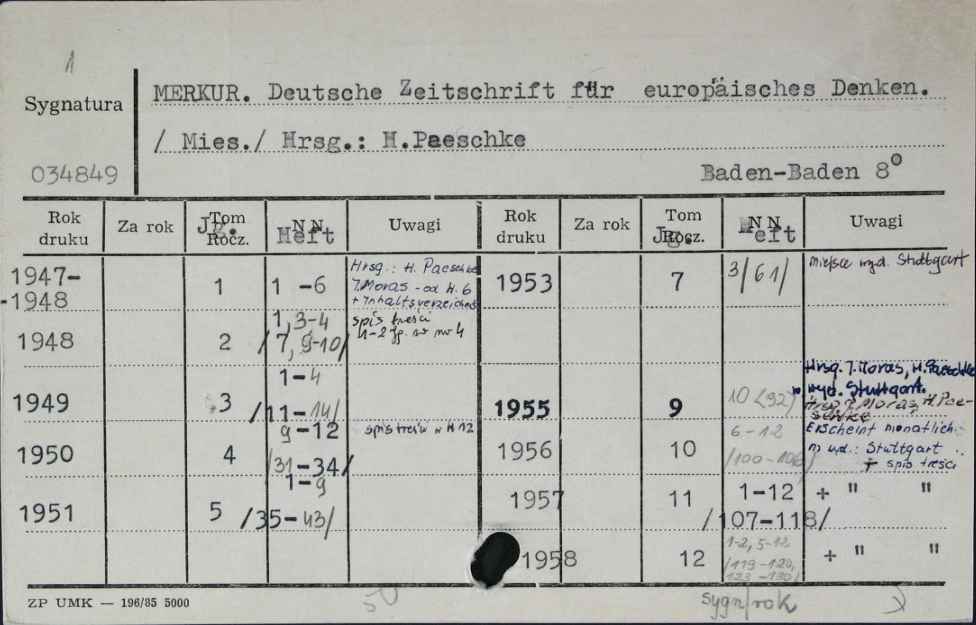 1
Sygnatura
MERKUR. Deutsche Zeitschrift für europäisches Denken.
/ Mies./ Hrsg.: H.Paeschke
034849
Baden-Baden 8°
Rok druku Za rok Tom Rocz. Jg. NN Heft Uwagi Rok druku Za rok Tom Rocz. Jg. NN Heft Uwagi
1947-
-1948 1 1 -6 Hrsg.: H. Paeschke
J. Moras - od H. 6
+ Inhaltsverzeichnis
1953 7 3/61/ miejsce wyd. Stuttgart
1948 2 1, 3-4
/7, 9-10/ spis treści
1949 3 1-4
/11-14/
1955 9 10 (92) Hrsg. J. Moras, H. Paeschke
wyd. Stuttgart.
J. Moras, H. Pae-
schke
1950 4 9-12
/31-34/ spis treści w H 12
1956 10 6-12
/100-106/ Erscheint monatlich.
m wyd.: Stuttgart
+ spis treści
1951 5 1-9
/35-43/
1957 11 1-12
/107-118/ + " "
1958 12 1-2, 5-12
/119-120,
123-130/ + " "
ZP UMK — 196/85 5000
sygn/rok